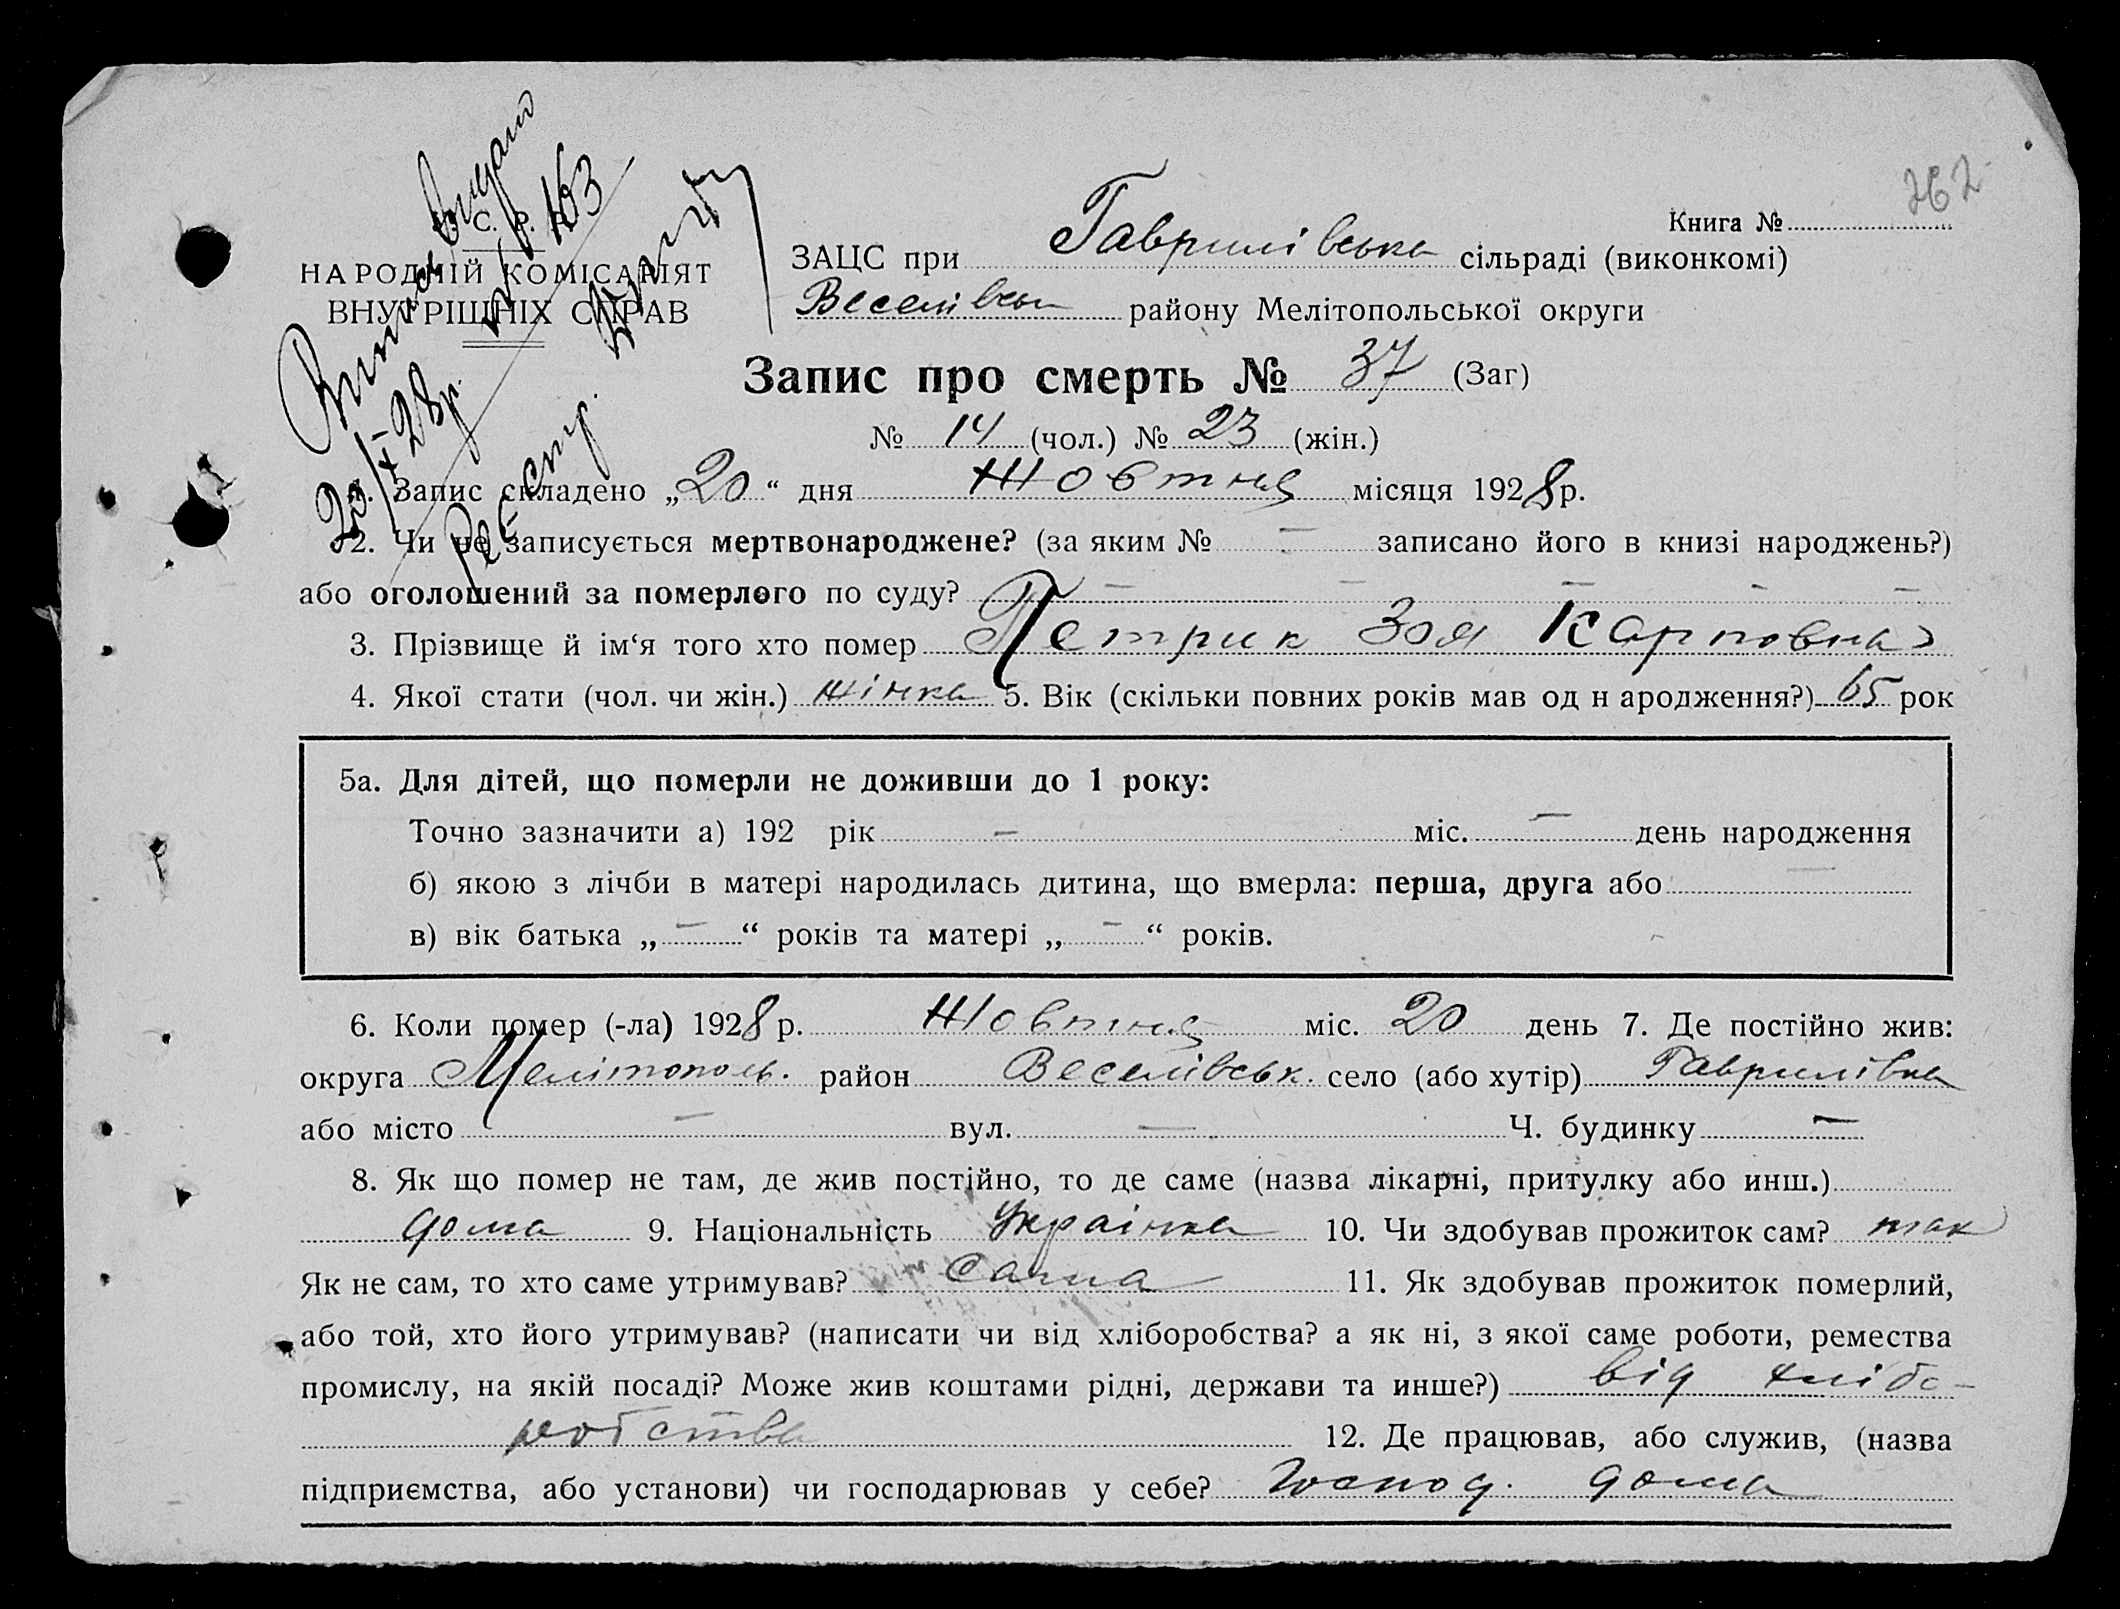 262
Книга №
У. С. Р. Р.
НАРОДНІЙ КОМІСАРІЯТ
ВНУТРІШНІХ СПРАВ
Виписа видано
23/X 28р. № 163
Реєстр.
ЗАЦС при Гаврилівська сільраді (виконкомі)
Веселівськ району Мелітопольської округи
Запис про смерть № 37 (Заг)
№ 14 (чол.) № 23 (жін.)
1. Запис складено „20“ дня Жовтня місяця 1928р.
2. Чи не записується мертвонароджене? (за яким № — записано його в книзі народжень?)
або оголошений за померлого по суду? — — — — —
3. Прізвище й ім‘я того хто помер Петрик Зоя Карповна
4. Якої стати (чол. чи жін.) жінка 5. Вік (скільки повних років мав од н ародження?) 65 рок
5а. Для дітей, що померли не доживши до 1 року:
Точно зазначити а) 192 рік — міс. — день народження
б) якою з лічби в матері народилась дитина, що вмерла: перша, друга або —
в) вік батька „—“ років та матері „—“ років.
6. Коли помер (-ла) 1928 р. Жовтня міс. 20 день 7. Де постійно жив:
округа Мелітополь. район Веселівськ. село (або хутір) Гаврилівка
або місто — вул. — Ч. будинку —
8. Як що помер не там, де жив постійно, то де саме (назва лікарні, притулку або инш.)
дома 9. Національність Українка 10. Чи здобував прожиток сам? так
Як не сам, то хто саме утримував? сама 11. Як здобував прожиток померлий,
або той, хто його утримував? (написати чи від хліборобства? а як ні, з якої саме роботи, ремества
промислу, на якій посаді? Може жив коштами рідні, держави та инше?) від хлібо-
робства 12. Де працював, або служив, (назва
підприємства, або установи) чи господарював у себе? Господ. дома